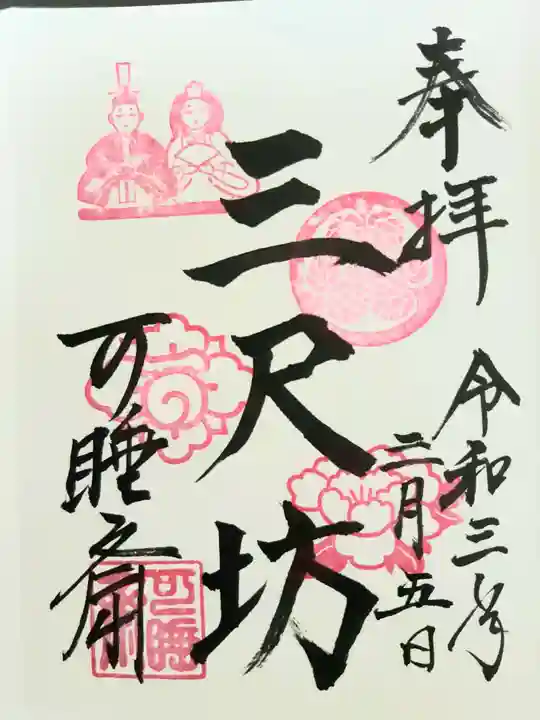 奉拝
令和三年
二月五日
三尺坊
可睡斎
可睡
斎